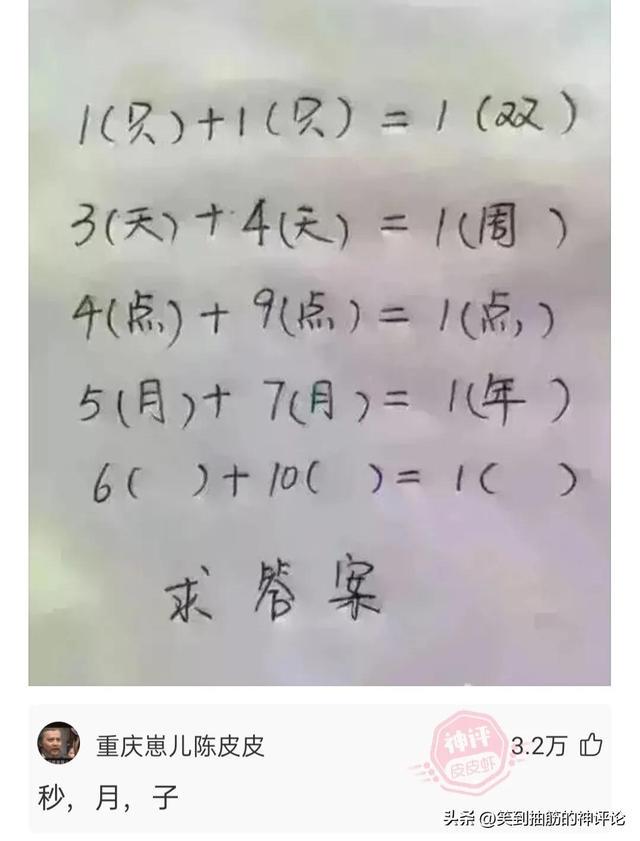 1(只)+1(只)=1(双)
3(天)+4(天)=1(周)
4(点)+9(点)=1(点)
5(月)+7(月)=1(年)
6( )+10( )=1( )
求答案
重庆崽儿陈皮皮
神评
皮皮虾
3.2万
秒，月，子
头条 @笑到抽筋的神评论